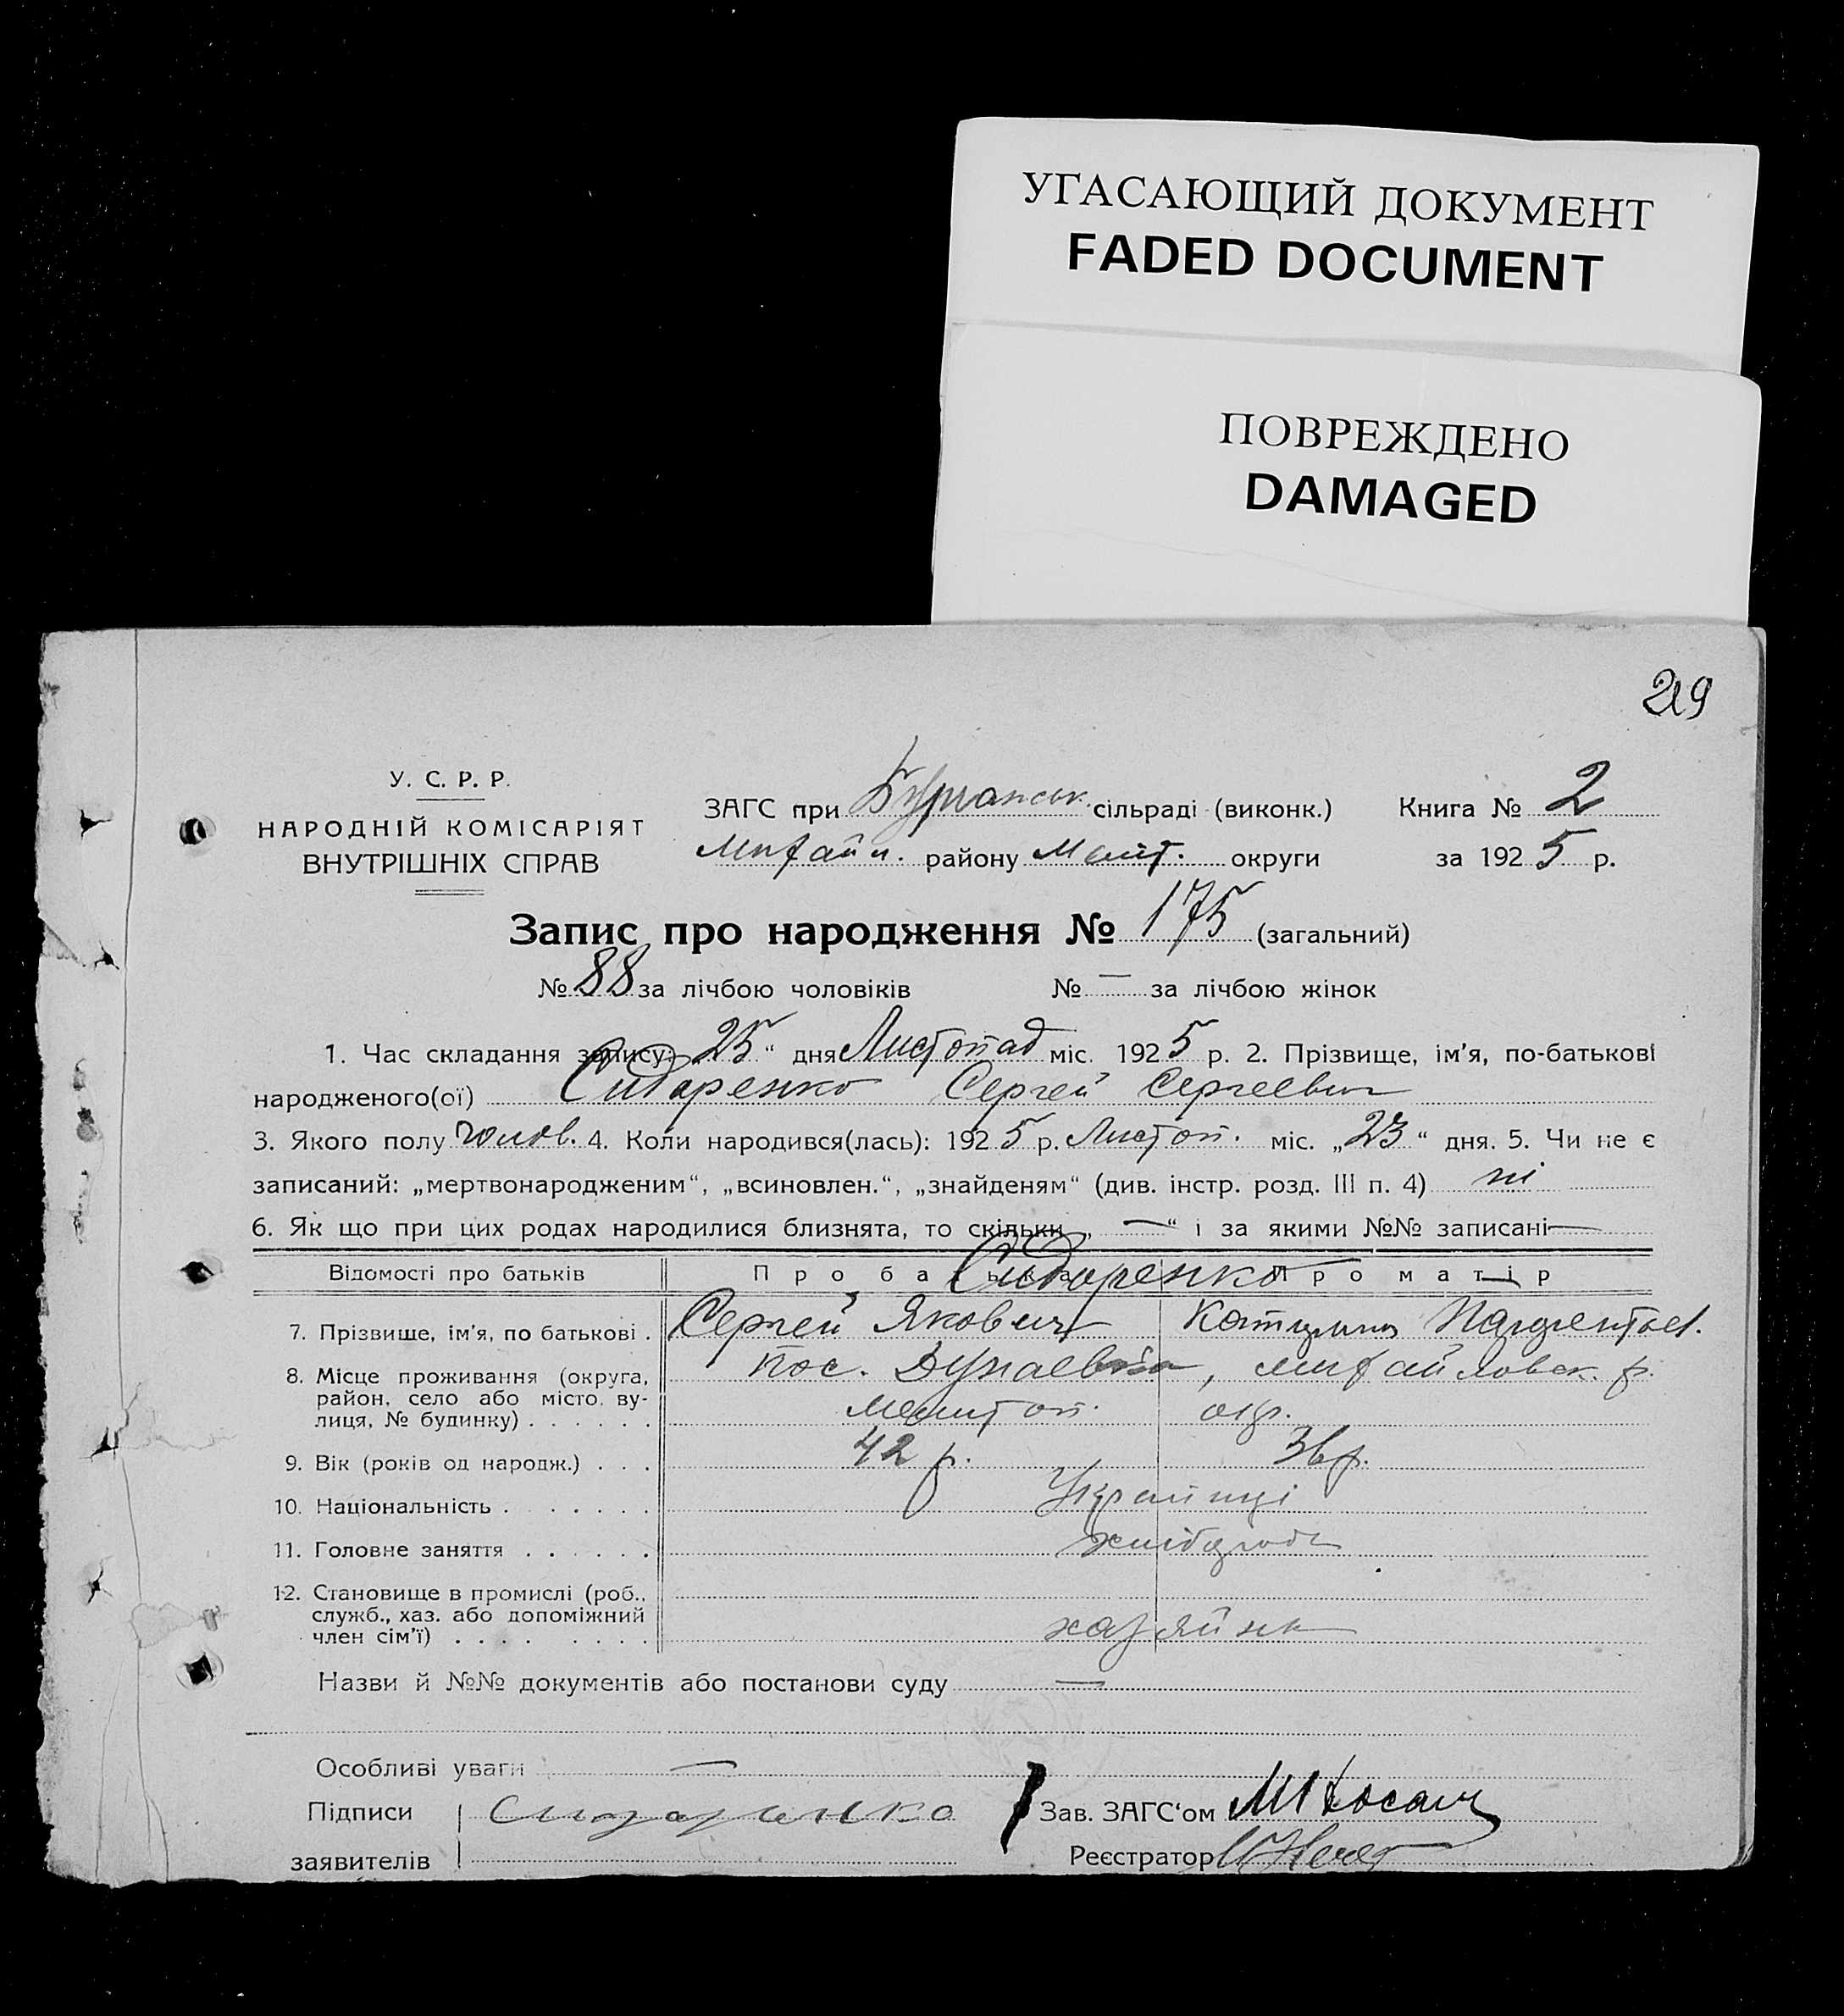 УГАСАЮЩИЙ ДОКУМЕНТ
FADED DOCUMENT
ПОВРЕЖДЕНО
DAMAGED
219
У. С. Р. Р.
НАРОДНІЙ КОМІСАРІЯТ
ВНУТРІШНІХ СПРАВ
ЗАГС при сільраді (виконк.) Книга № 2
Михайл. району Меліт. округи за 1925 р.
Запис про народження № 175 (загальний)
№ 88 за лічбою чоловіків № — за лічбою жінок
1. Час складання запису: „25“ дня Листопад міс. 1925 р. 2. Прізвище, ім’я, по-батькові
народженого(ої) Сидоренко Сергей Сергеевич
3. Якого полу чолов. 4. Коли народився(лась): 1925 р. Листоп. міс. „23“ дня. 5. Чи не є
записаний: „мертвонародженим“, „всиновлен.“, „знайденям“ (див. інстр. розд. III п. 4) ні
6. Як що при цих родах народилися близнята, то скільки „—“ і за якими №№ записані —
Відомості про батьків Про батька Про матір
Сидоренко
7. Прізвище, ім’я, по батькові . Сергей Якович
8. Місце проживання (округа, пос. , Михайловск. р.
район, село або місто, ву-
лиця, № будинку) . . . . . . Мелитоп. окр.
9. Вік (років од народж.) . . . 42 р. 36 р.
10. Національність . . . . . . . Українці
11. Головне заняття . . . . . .
12. Становище в промислі (роб.,
служб., хаз. або допоміжний
член сім’ї) . . . . . . . . .
Назви й №№ документів або постанови суду —
Особливі уваги —
Підписи Сидаранко Зав. ЗАГС‘ом
заявителів Реєстратор